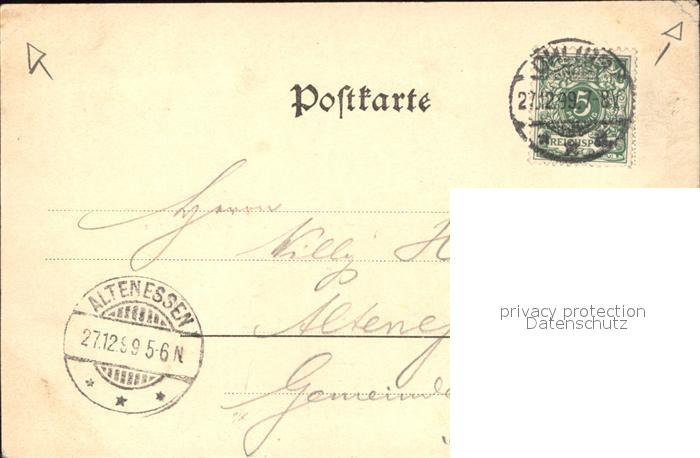 Postkarte
27.12.99 8
5
REICHSPOST
Herrn
Willy H
ALTENESSEN
27.12.99 5-6 N
Altenes
Gemeinde
privacy protection
Datenschutz